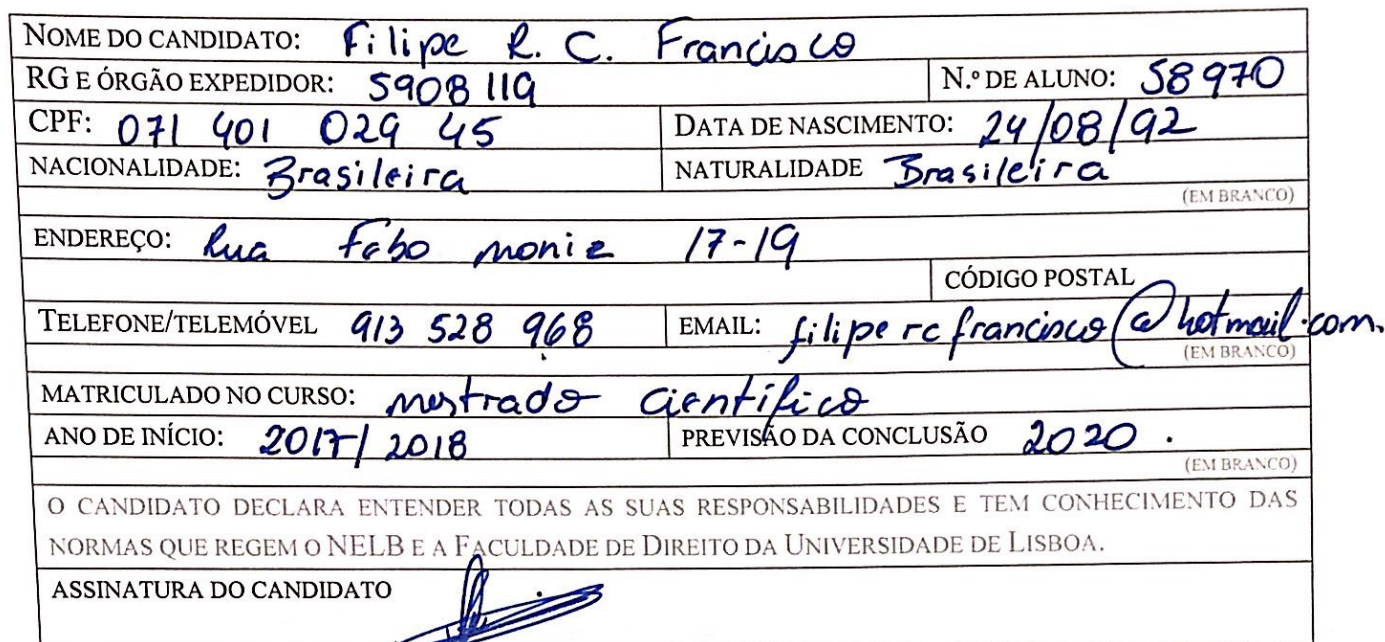 NOME DO CANDIDATO: Filipe R. C. Francisco
RG E ÓRGÃO EXPEDIDOR: 5908119 N.º DE ALUNO: 58970
CPF: 071 401 029 45 DATA DE NASCIMENTO: 24/08/92
NACIONALIDADE: Brasileira NATURALIDADE Brasileira
(EM BRANCO)
ENDEREÇO: Rua moniz 17-19
CÓDIGO POSTAL
TELEFONE/TELEMÓVEL 913 528 968 EMAIL: filipe rc francisco@hotmail.com.
(EM BRANCO)
MATRICULADO NO CURSO: mestrado científico
ANO DE INÍCIO: 2017/2018 PREVISÃO DA CONCLUSÃO 2020.
(EM BRANCO)
O CANDIDATO DECLARA ENTENDER TODAS AS SUAS RESPONSABILIDADES E TEM CONHECIMENTO DAS
NORMAS QUE REGEM O NELB E A FACULDADE DE DIREITO DA UNIVERSIDADE DE LISBOA.
ASSINATURA DO CANDIDATO